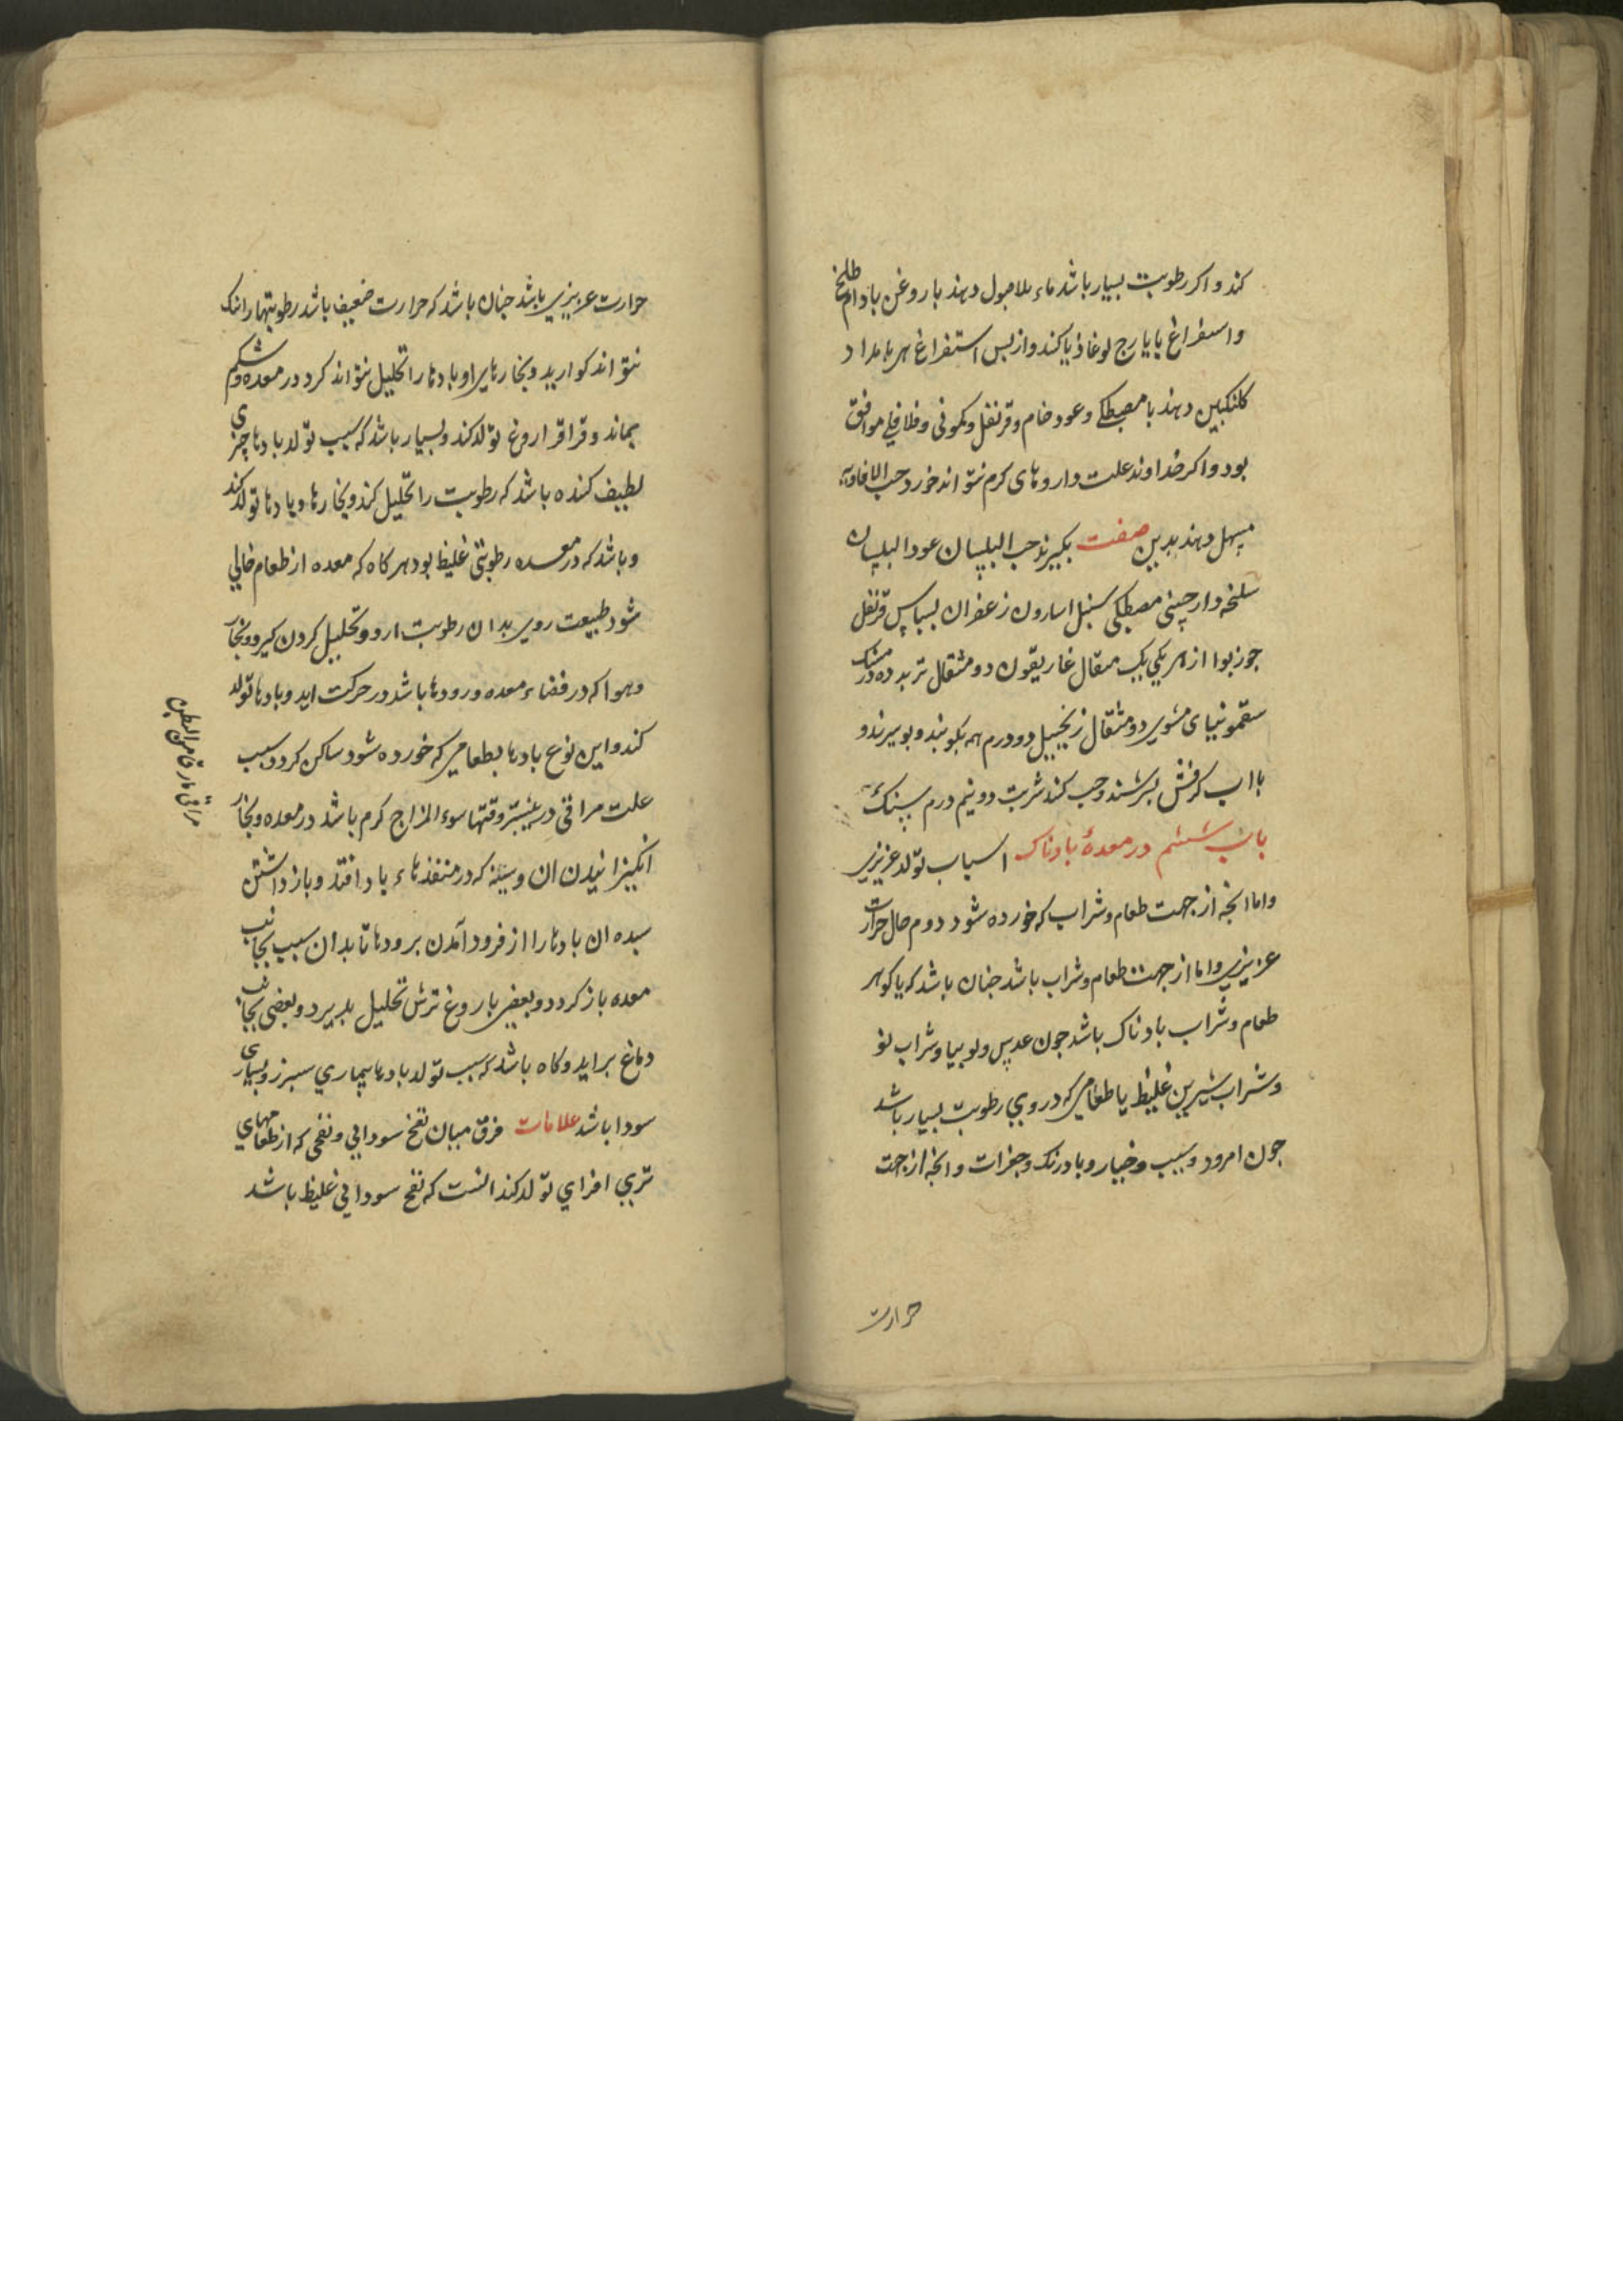 کند و اکر رطوبت بسیار باشد ماء بلاصول دهند با روغن بادام طلخ
و استفراغ بایارج لوغاذیا کند و از بس استفراغ هر بامداد
کلنکبین دهند با مصطکی و عود خام و قرنفل و کمونی و فلافلی موافق
بود و اکر خداوند علت داروهای کرم نتواند خورد حب الافاویه
مسهل دهند بدین صفت بکیرند حب البلسان عود البلسان
سلنخه دارچینی مصطکی سنبل اسارون زعفران بسباس قرنفل
جوزبوا از هر یکی یک مثقال غاریقون دو مثقال تربد ده درمسنک
سقمونیای مشوی دو مثقال زنجبیل دو درم همه بکوبند و ببیزند و
با اب کرفش بسرشند و حب کنند شربت دو نیم درم سنک
باب ششم در معدۀ بادناک اسباب تولد عزیزی
و اما انجه از جهت طعام و شراب که خورده شود دوم حال حرارت
عزیزی و اما از جهت طعام و شراب باشد جنان باشد که یا کوهر
طعام و شراب بادناک باشد جون عدس و لوبیا و شراب نو
و شراب شیرین غلیظ یا طعامی که در وی رطوبت بسیار باشد
جون امرود و سیب و خیار و بادرنک و جغرات و انجه از جهت
حرارت
حرارت عزیزی باشد جنان باشد که حرارت ضعیف باشد رطوبتها را نک
نتواند کوارید و بخارهای او بادها را تحلیل نتواند کرد در معده و شکم
بماند و قراقر اروغ تولد کند و بسیار باشد که سبب تولد بادها چیزی
لطیف کننده باشد که رطوبت را تحلیل کند و بخارها و بادها تولد کند
و باشد که در معده رطوبتی غلیظ بود هر کاه که معده از طعام خالی
شود طبیعت روی بدان رطوبت ارد و تحلیل کردن کیرد و بخار
و هوا که در فضاء معده و رودها باشد در حرکت اید و بادها تولد
کند و این نوع بادها بطعامی که خورده شود ساکن کردد و سبب
علت مراقی در بیشتر وقتها سوء المزاج کرم باشد در معده و بخار
انکیزانیدن ان و سده که در منفذهاء باد افتد و باز داشتن
سده ان بادها را از فرود آمدن برودها تا بدان سبب بجانب
معده باز کردد و بعضی باروغ ترش تحلیل بذیرد و بعضی بجانب
دماغ براید و کاه باشد که سبب تولد بادها بیماری سبرز و بسیاری
سودا باشد علامات فرق میان نفخ سودایی و نفخی که از طعامهای
تری افزای تولد کند انست که نفخ سودایی غلیظ باشد
مراق مارق من البطن